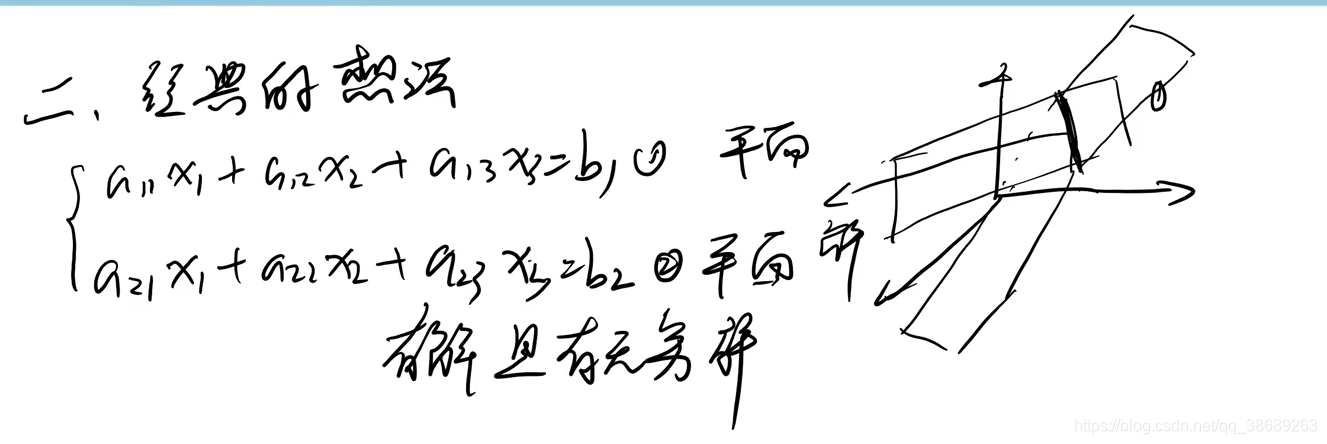 二、经典的想法
a₁₁x₁+a₁₂x₂+a₁₃x₃=b₁ ① 平面
a₂₁x₁+a₂₂x₂+a₂₃x₃=b₂ ② 平面
解
①
有解且有无穷解
https://blog.csdn.net/qq_38689263